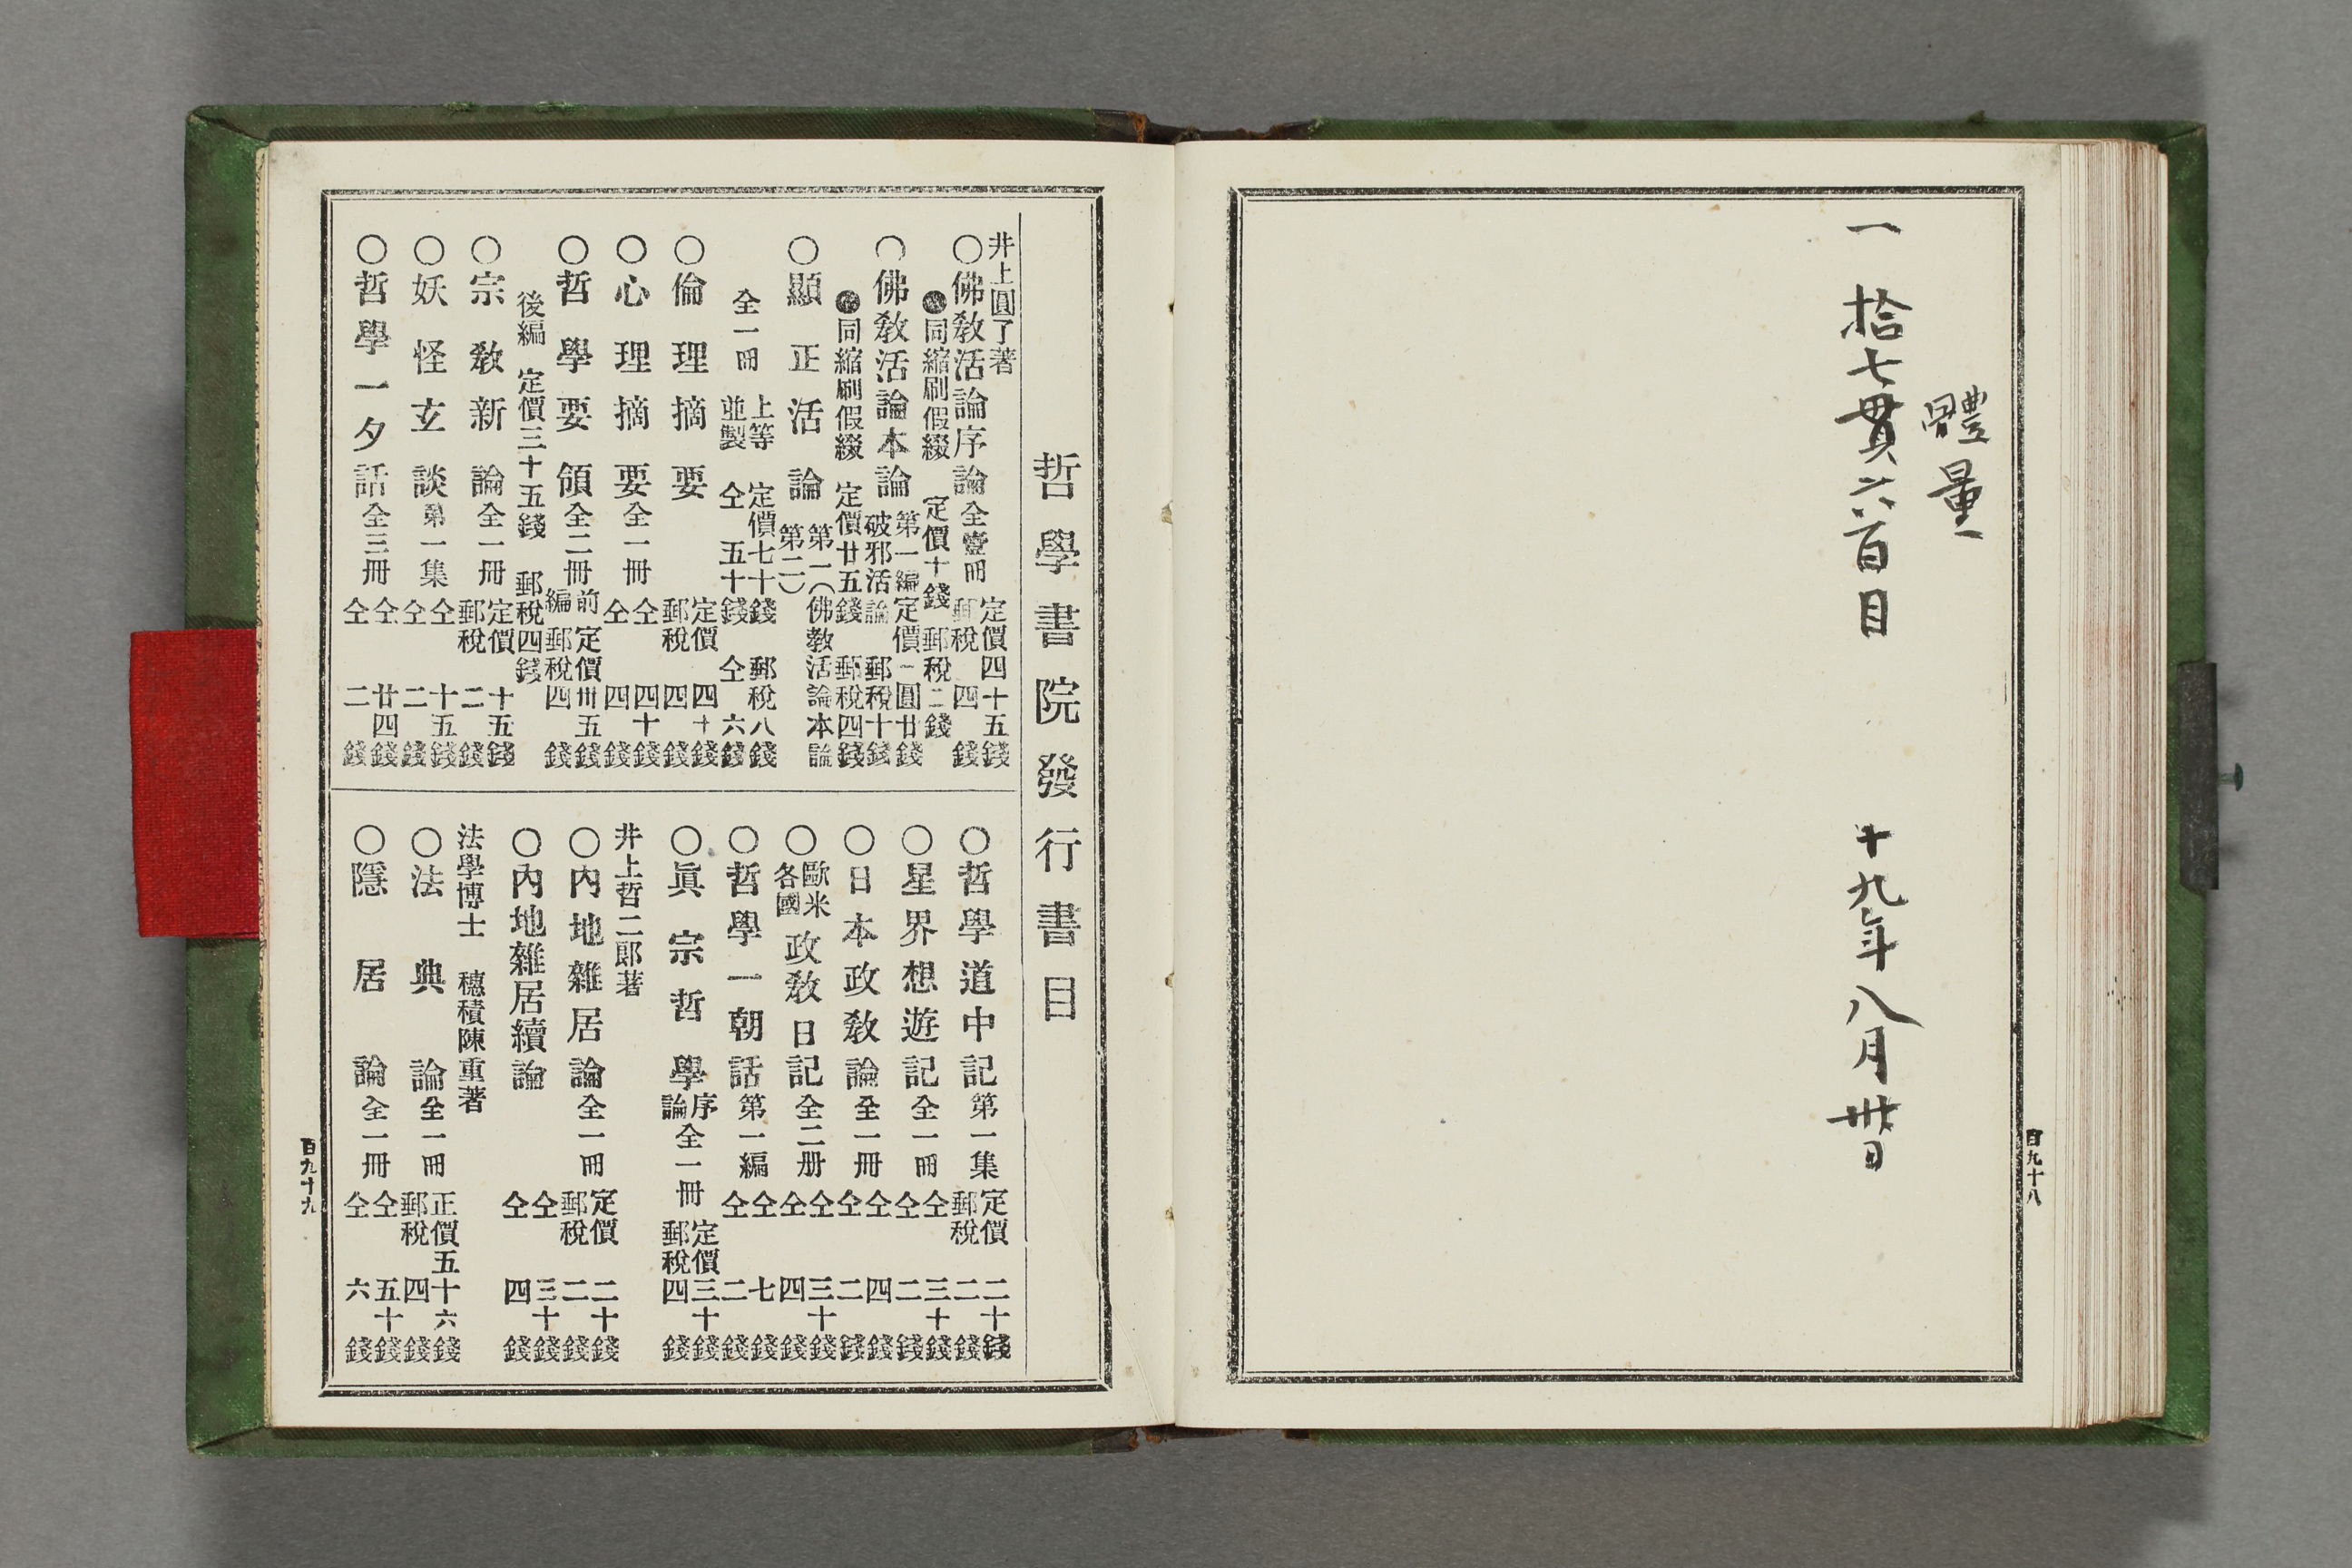 體量
一 拾七貫六百目 十九年八月卅日
百九十八
哲學書院發行書目
井上圓了著
○佛敎活論序論全壹冊 定價四十五錢 郵稅四錢
同縮刷假綴 定價十錢 郵稅二錢
○佛敎活論本論 第一編 破邪活論 定價一圓廿錢 郵稅十錢
同縮刷假綴 定價廿五錢 郵稅四錢
○顯正活論 第一(佛敎活論本論 第二)
全一冊 上等 定價七十錢 郵稅八錢 並製 仝 五十錢 仝 六錢
○倫理摘要 定價四十錢 郵稅四錢
○心理摘要全一冊 仝四十錢 仝四錢
○哲學要領全二冊 前編 定價卅五錢 郵稅四錢
後編 定價三十五錢 郵稅四錢
○宗敎新論全一冊 定價十五錢 郵稅二錢
○妖怪玄談第一集 仝十五錢 仝二錢
○哲學一夕話全三冊 仝廿四錢 仝二錢
○哲學道中記第一集 定價二十錢 郵稅二錢
○星界想遊記全一冊 仝三十錢 仝二錢
○日本政敎論全一冊 仝四錢 仝二錢
○歐米各國政敎日記全二册 仝三十錢 仝四錢
○哲學一朝話第一編 仝七錢 仝二錢
○眞宗哲學序論全一冊 定價三十錢 郵稅四錢
井上哲二郎著
○內地雜居論全一冊 定價二十錢 郵稅二錢
○內地雜居續論 仝三十錢 仝四錢
法學博士 穗積陳重著
○法典論全一冊 正價五十六錢 郵稅四錢
○隱居論全一冊 仝五十錢 仝六錢
百九十九